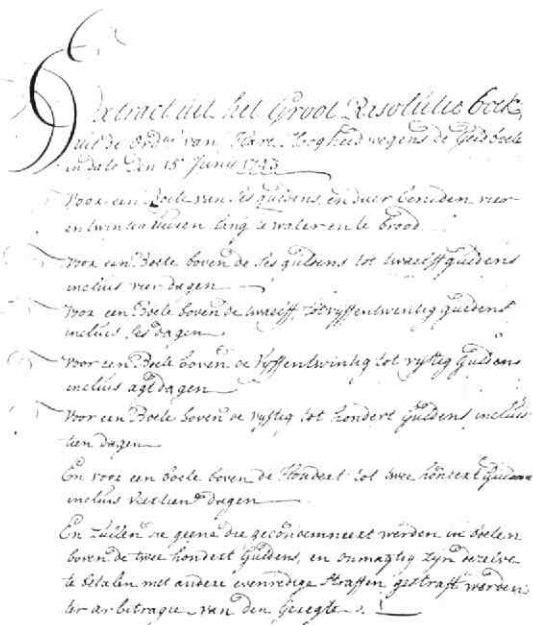 Extract uit het Groot Resolutie boek,
uit de Ord.e van Hare Hoogheid wegens de Geldboete
in dato den 15 Junij 1743
Voor een Boete van ses guldens en daer beneden vier
en twintig uuren lang te water en te brood
Voor een Boete boven de ses guldens tot twaelff guldens
incluis vier dagen
Voor een Boete boven de twaelff tot vyffentwintig guldens
incluis ses dagen
Voor een Boete boven de vyffentwintig tot vyftig Guldens
incluis agt dagen
Voor een Boete boven de vyftig tot hondert Guldens incluis
tien dagen
En voor een boete boven de Hondert tot twee hondert Guldens
incluis veertien dagen
En zullen de geene die gecondemneert werden in boeten
boven de twee hondert Guldens, en onmagtig zyn dezelve
te betalen met andere evenredige straffen gestraft werden
ter arbitragie van den Geregte.